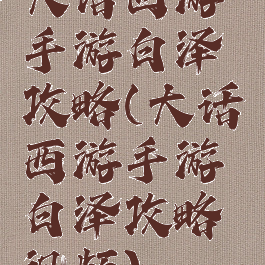 大话西游
手游白泽
攻略(大话
西游手游
白泽攻略
视频)